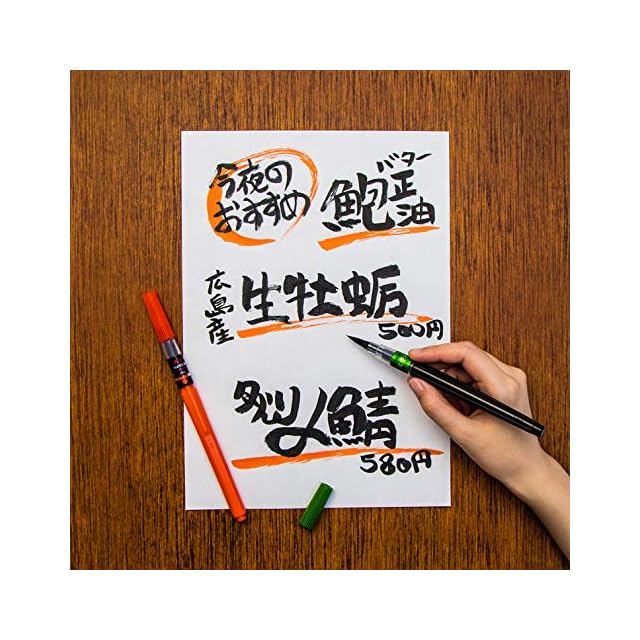 今夜の
おすすめ
鮑
バター
正油
広島産
生牡蛎
500円
炙り〆鯖
580円